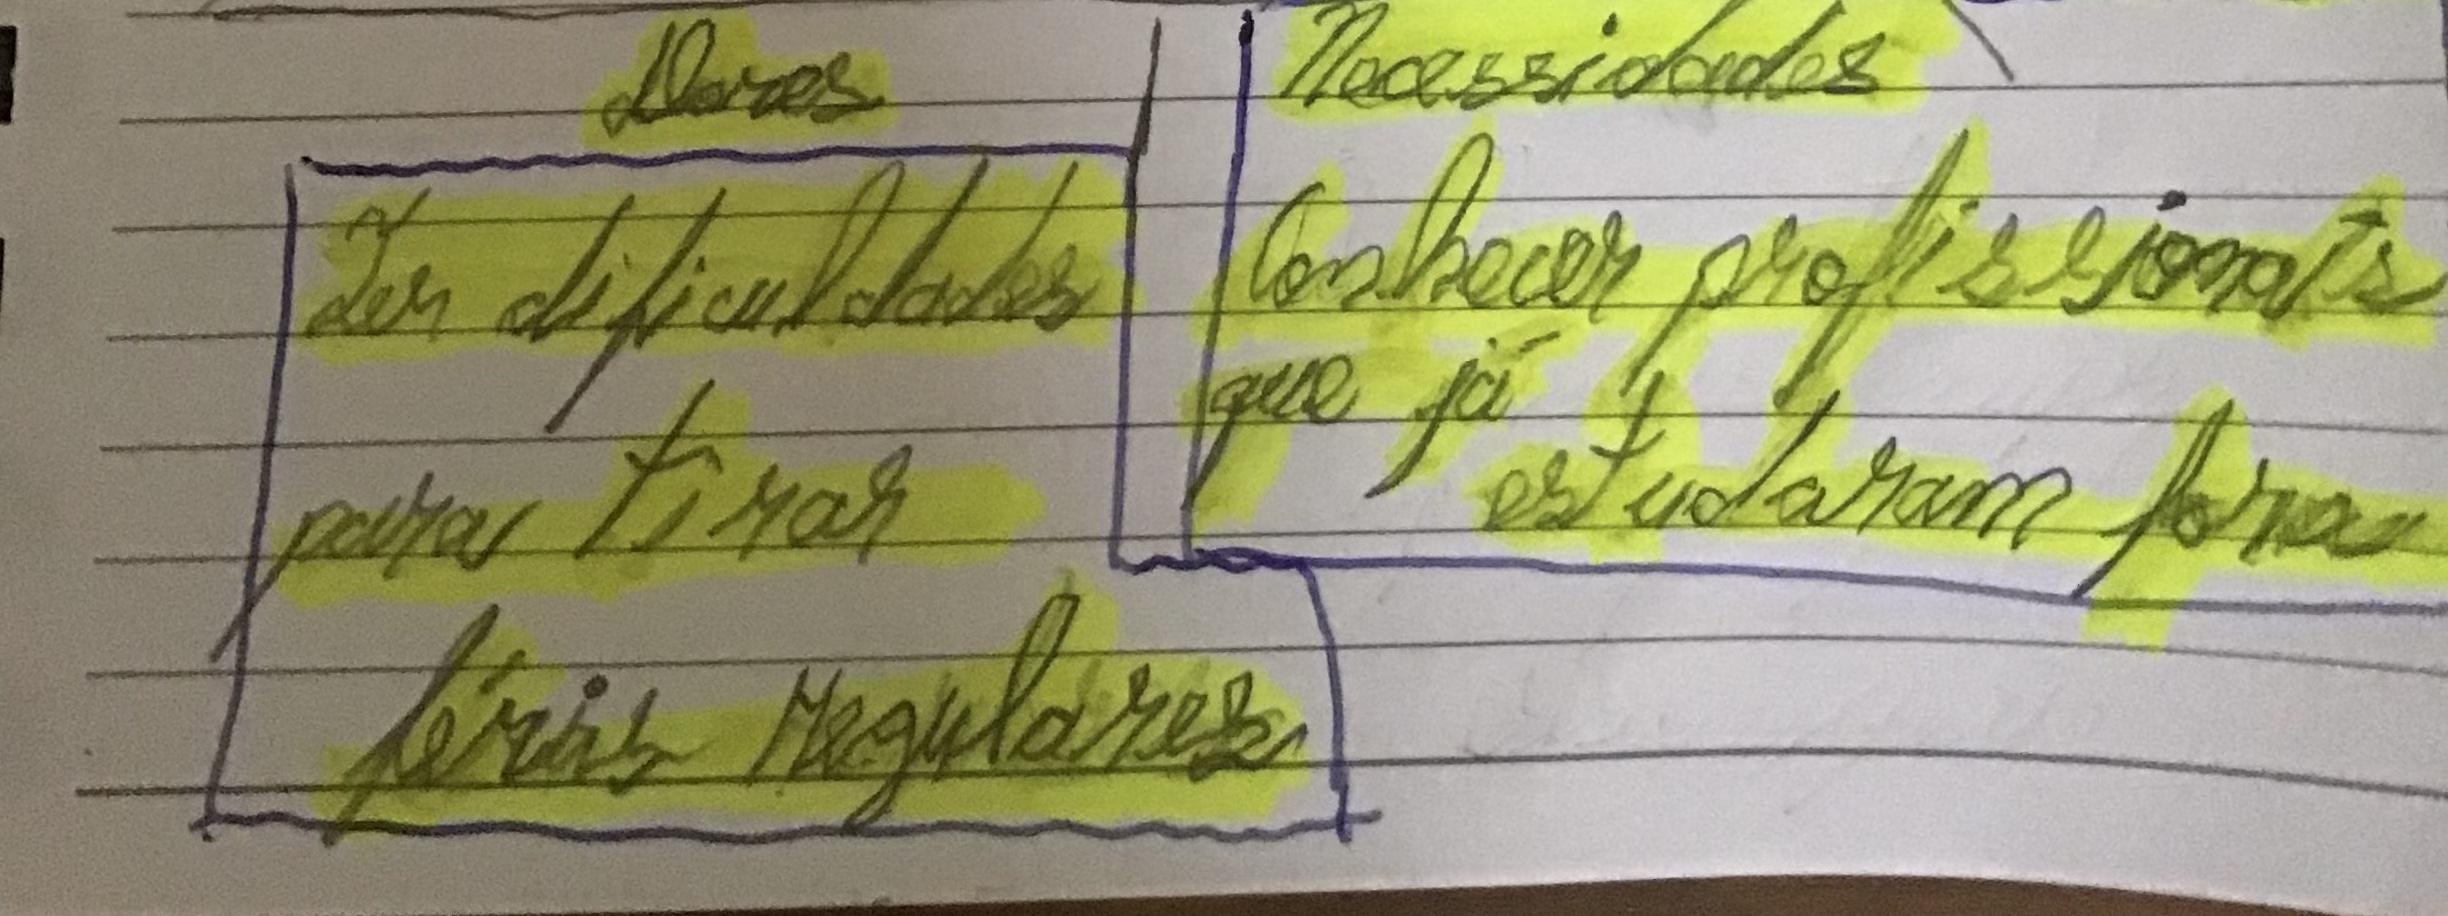 Dores
Ter dificuldades
para tirar
férias regulares
Necessidades
Conhecer profissionais
que já
estudaram fora